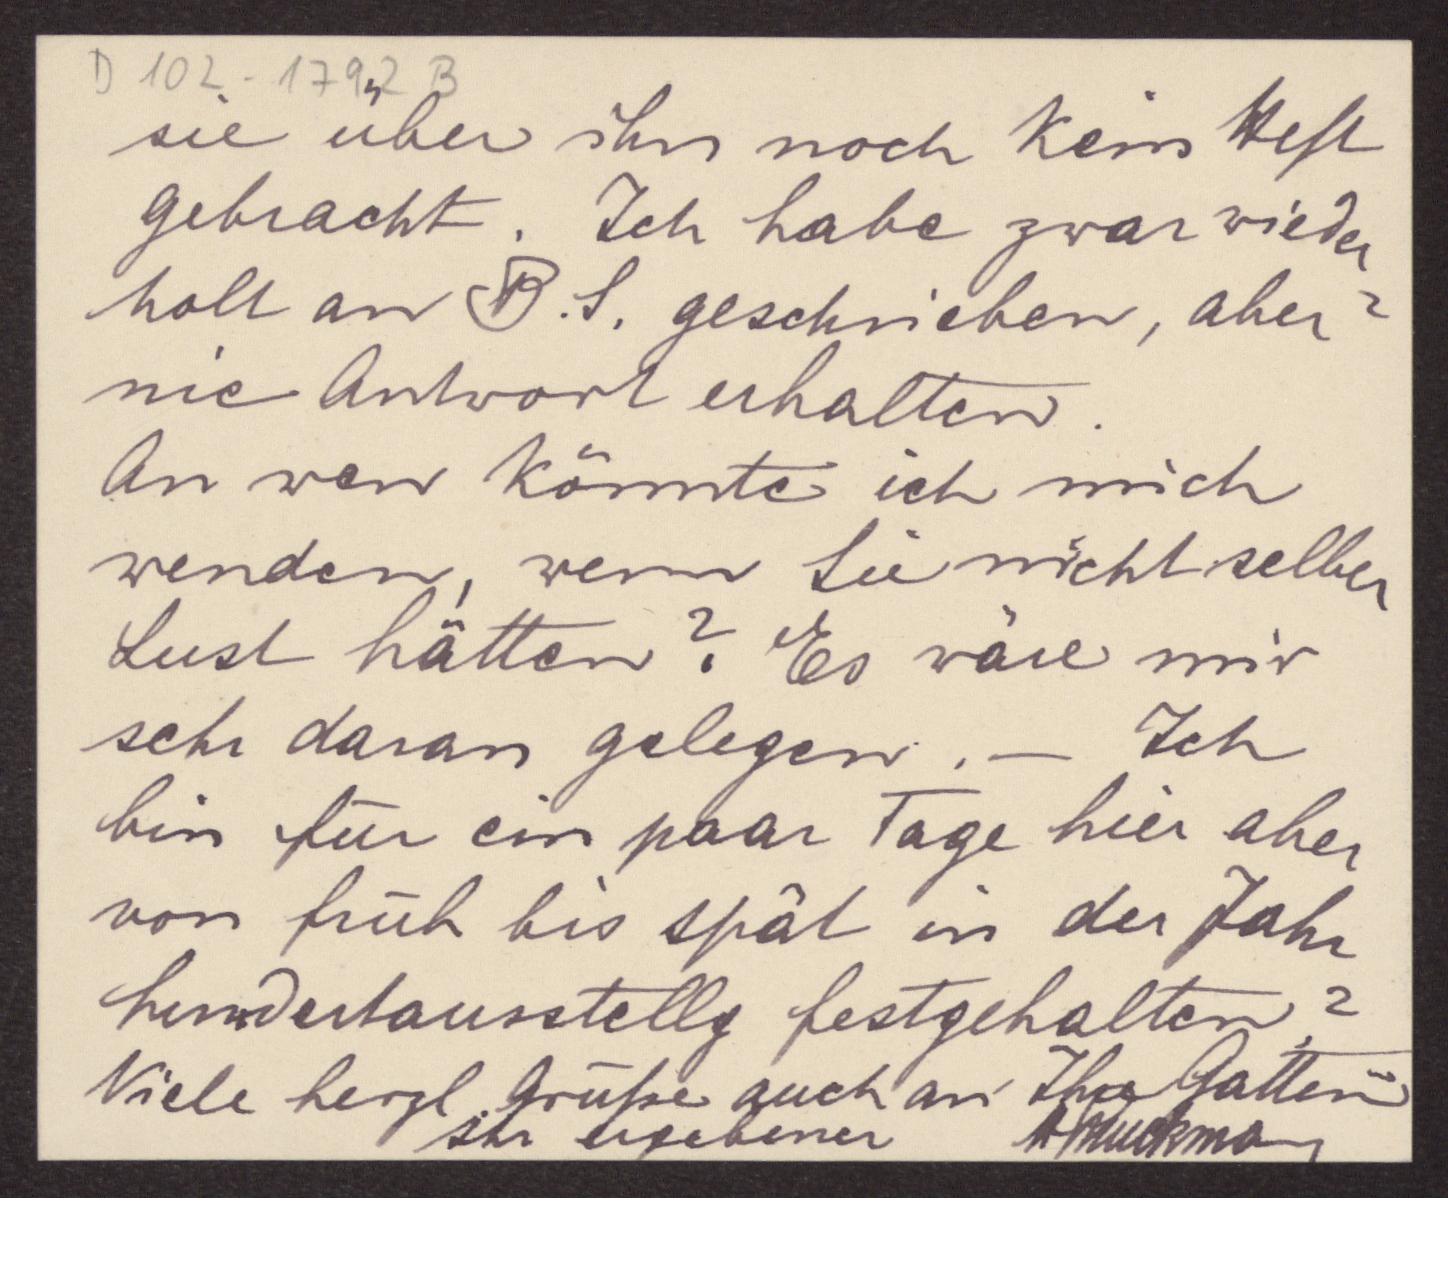 D 102-1792 B
sie über ihn noch kein Heft
gebracht. Ich habe zwar wieder
holt an B.S. geschrieben, aber
nie Antwort erhalten.
An wen könnte ich mich
wenden, wenn Sie nicht selber
Lust hätten? Es wäre mir
sehr daran gelegen. — Ich
bin für ein paar Tage hier aber
von früh bis spät in der Jahr
hundertausstellg festgehalten
Viele herzl. Grüße auch an Ihre Gattin
Ihr ergebener